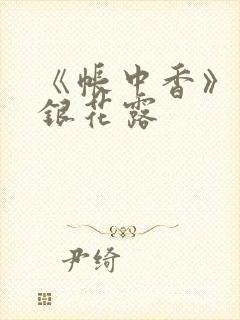 《帐中香》
银花露
尹绮